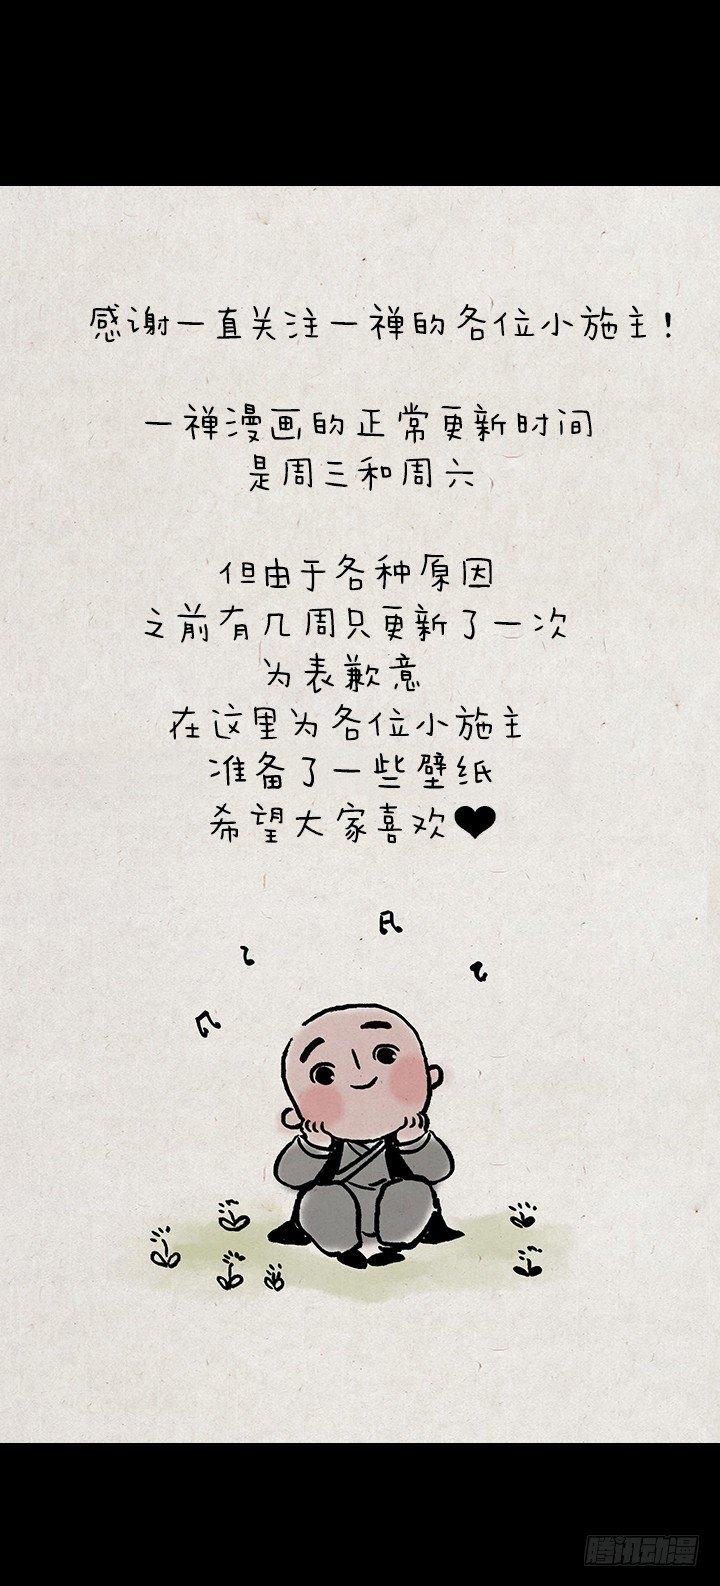 感谢一直关注一禅的各位小施主!
一禅漫画的正常更新时间
是周三和周六
但由于各种原因
之前有几周只更新了一次
为表歉意
在这里为各位小施主
准备了一些壁纸
希望大家喜欢♥
腾讯动漫